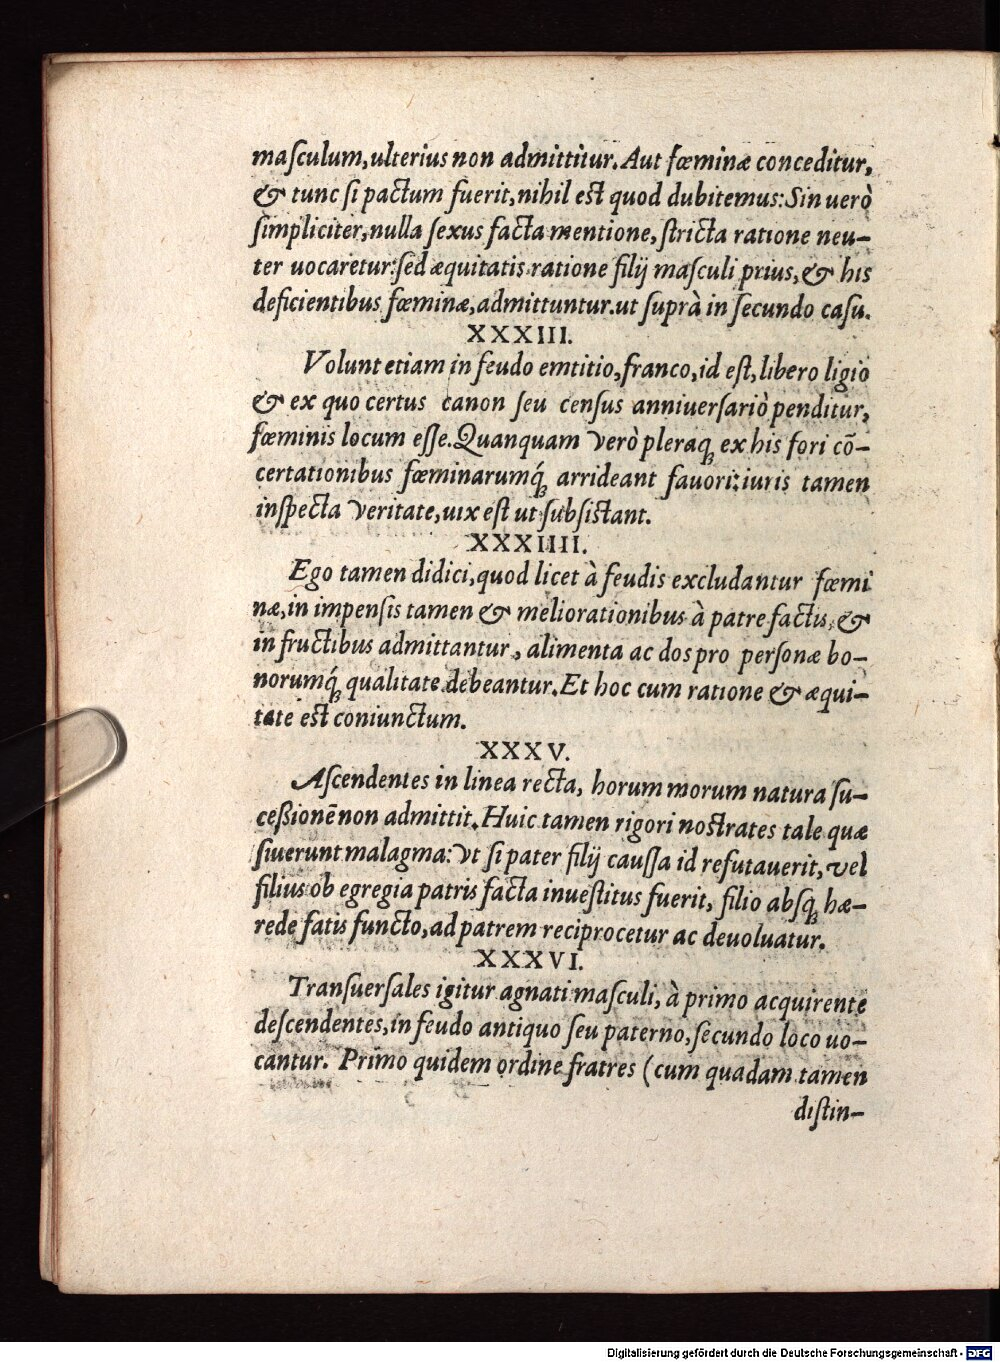 maſculum, ulterius non admittitur. Aut fœminæ conceditur,
& tunc ſi pactum fuerit, nihil eſt quod dubitemus: Sin uerò
ſimpliciter, nulla ſexus facta mentione, ſtricta ratione neu-
ter uocaretur: ſed æquitatis ratione filij maſculi prius, & his
deficientibus fœminæ, admittuntur. ut ſuprà in ſecundo caſu.
XXXIII.
Volunt etiam in feudo emtitio, franco, id eſt, libero ligio
& ex quo certus canon ſeu cenſus anniuerſariò penditur,
fœminis locum eſſe. Quanquam verò pleraq́; ex his fori cō-
certationibus fœminarumq́; arrideant fauori: iuris tamen
inſpecta veritate, uix eſt ut ſubſiſtant.
XXXIIII.
Ego tamen didici, quod licet à feudis excludantur fœmi
næ, in impenſis tamen & meliorationibus à patre factis, &
in fructibus admittantur, alimenta ac dos pro perſonæ bo-
norumq́; qualitate debeantur. Et hoc cum ratione & æqui-
tate eſt coniunctum.
XXXV.
Aſcendentes in linea recta, horum morum natura ſu-
ceſsionē non admittit. Huic tamen rigori noſtrates tale quæ
ſiuerunt malagma: Vt ſi pater filij cauſſa id refutauerit, vel
filius ob egregia patris facta inueſtitus fuerit, filio abſq; hæ-
rede fatis functo, ad patrem reciprocetur ac deuoluatur.
XXXVI.
Tranſuerſales igitur agnati maſculi, à primo acquirente
deſcendentes, in feudo antiquo ſeu paterno, ſecundo loco uo-
cantur. Primo quidem ordine fratres (cum quadam tamen
diſtin-
Digitalisierung gefördert durch die Deutsche Forschungsgemeinschaft - DFG